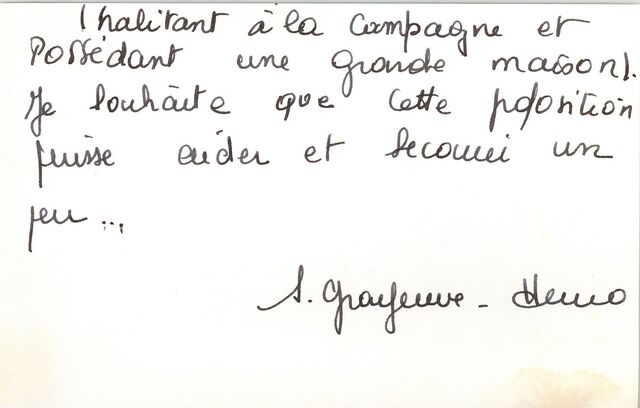 (habitant à la campagne et
Possédant une grande maison).
Je souhaite que cette poposition
puisse aider et secouri un
peu...
S.